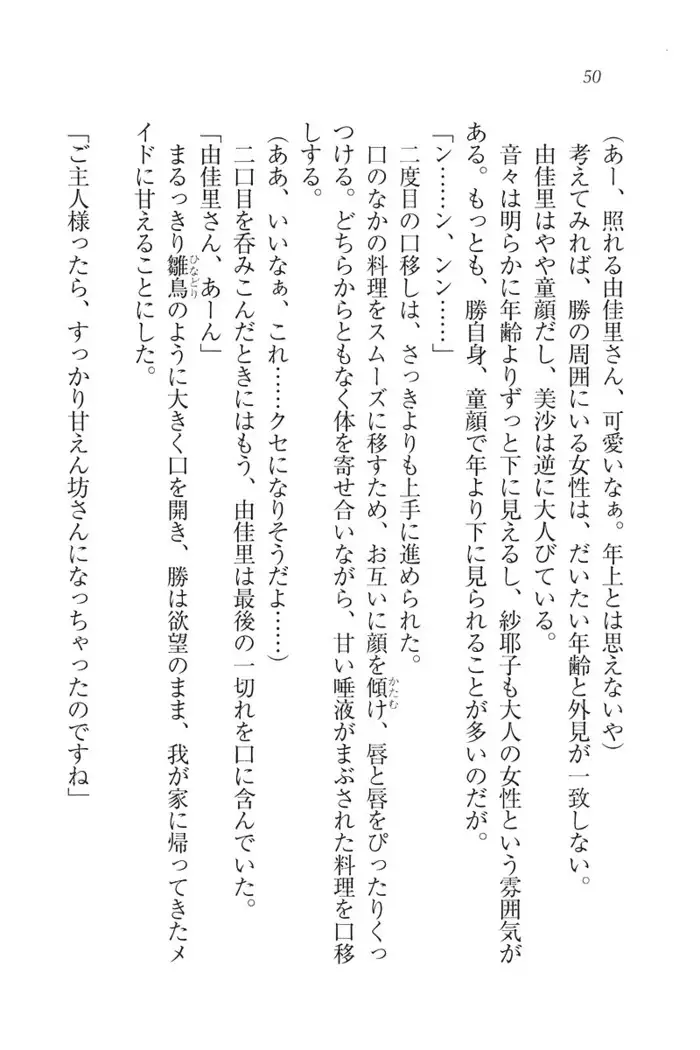 50
(あー、照れる由佳里さん、可愛いなぁ。年上とは思えないや)
考えてみれば、勝の周囲にいる女性は、だいたい年齢と外見が一致しない。
由佳里はやや童顔だし、美沙は逆に大人びている。
音々は明らかに年齢よりずっと下に見えるし、紗耶子も大人の女性という雰囲気が
ある。もっとも、勝自身、童顔で年より下に見られることが多いのだが。
「ン……ン、ンン……」
二度目の口移しは、さっきよりも上手に進められた。
口のなかの料理をスムーズに移すため、お互いに顔を傾け、唇と唇をぴったりくっ
つける。どちらからともなく体を寄せ合いながら、甘い唾液がまぶされた料理を口移
しする。
(ああ、いいなぁ、これ……クセになりそうだよ……)
二口目を呑みこんだときにはもう、由佳里は最後の一切れを口に含んでいた。
「由佳里さん、あーん」
まるっきり雛鳥のように大きく口を開き、勝は欲望のまま、我が家に帰ってきたメ
イドに甘えることにした。
「ご主人様ったら、すっかり甘えん坊さんになっちゃったのですね」
かたむ
ひなどり